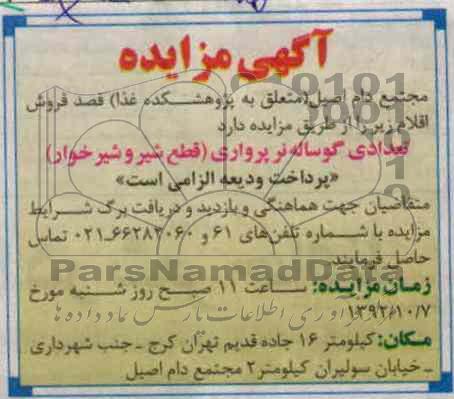 آگهی مزایده
مجتمع دام اصیل(متعلق به پژوهشکده غذا) قصد فروش
اقلام زیر را از طریق مزایده دارد
تعدادی گوساله نر پرواری (قطع شیر و شیر خوار)
«پرداخت ودیعه الزامی است»
متقاضیان جهت هماهنگی و بازدید و دریافت برگ شرایط
مزایده با شماره تلفن‌های ۶۱ و ۶۶۲۸۲۰۶۰-۰۲۱ تماس
حاصل فرمایند.
ParsNamadData
زمان مزایده: ساعت ۱۱ صبح روز شنبه مورخ
۱۳۹۲/۱۰/۷
فرآوری اطلاعات پارس نماد داده ها
مکان: کیلومتر ۱۶ جاده قدیم تهران کرج - جنب شهرداری
- خیابان سولیران کیلومتر۲ مجتمع دام اصیل